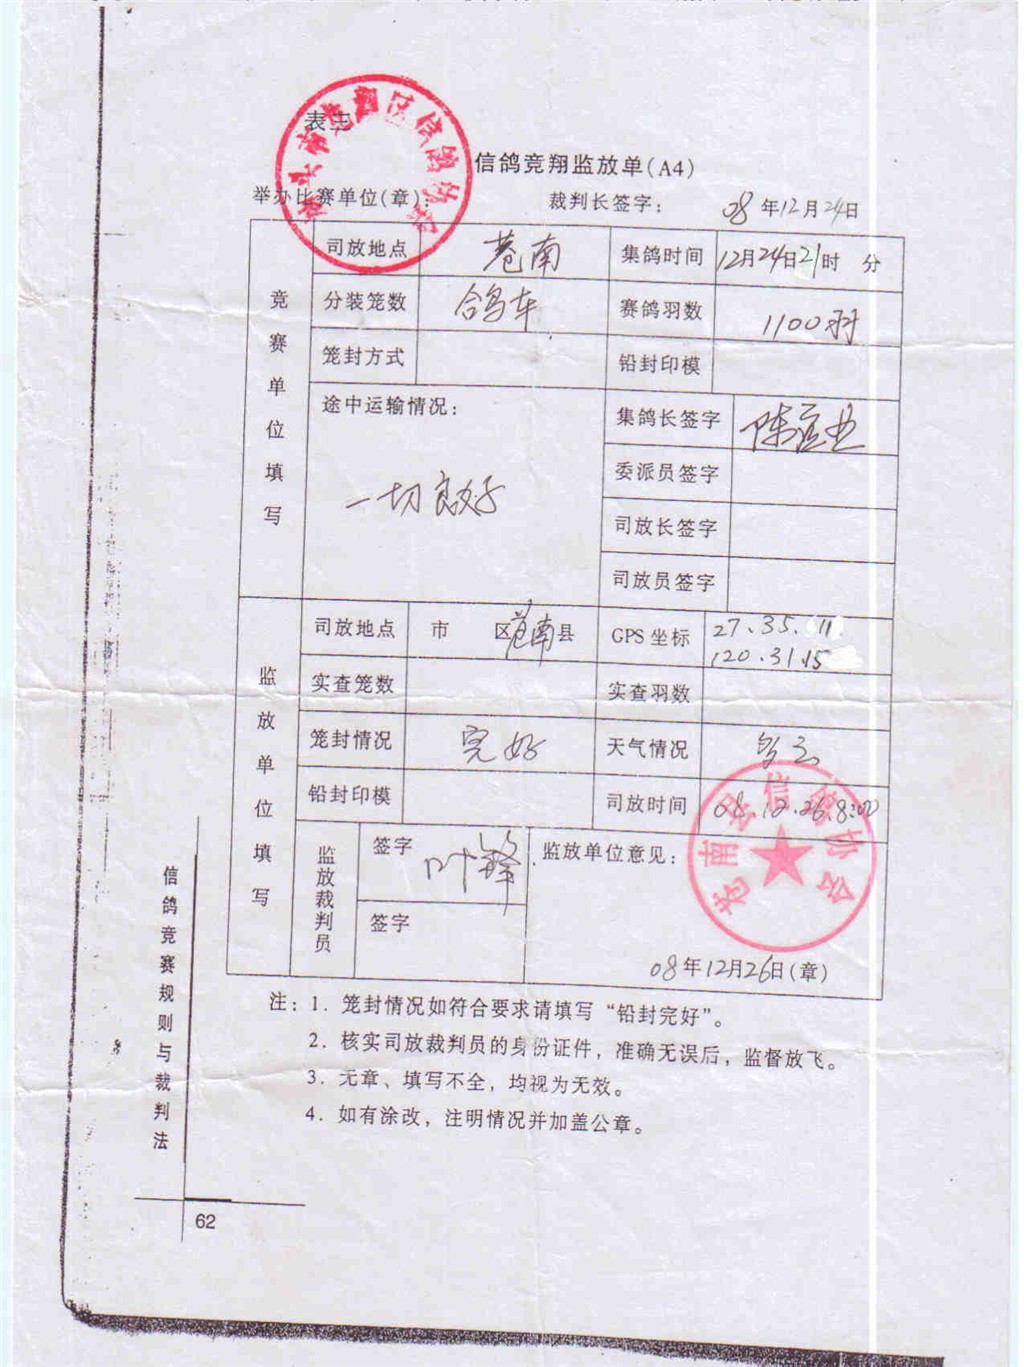 表三
信鸽竞翔监放单(A4)
举办比赛单位(章): 裁判长签字: 08年12月24日
竞赛单位填写
司放地点 苍南 集鸽时间 12月24日21时 分
分装笼数 鸽车 赛鸽羽数 1100羽
笼封方式 铅封印模
途中运输情况: 集鸽长签字
一切良好 委派员签字
司放长签字
司放员签字
监放单位填写
司放地点 市 区苍南县 GPS坐标 27.35.11
120.31.15
实查笼数 实查羽数
笼封情况 完好 天气情况 多云
铅封印模 司放时间 08.12.26.8:00
监放裁判员 签字 叶锋 监放单位意见:
签字
苍南县信鸽协会
08年12月26日(章)
注: 1. 笼封情况如符合要求请填写“铅封完好”。
2. 核实司放裁判员的身份证件，准确无误后，监督放飞。
3. 无章、填写不全，均视为无效。
4. 如有涂改，注明情况并加盖公章。
信鸽竞赛规则与裁判法
62